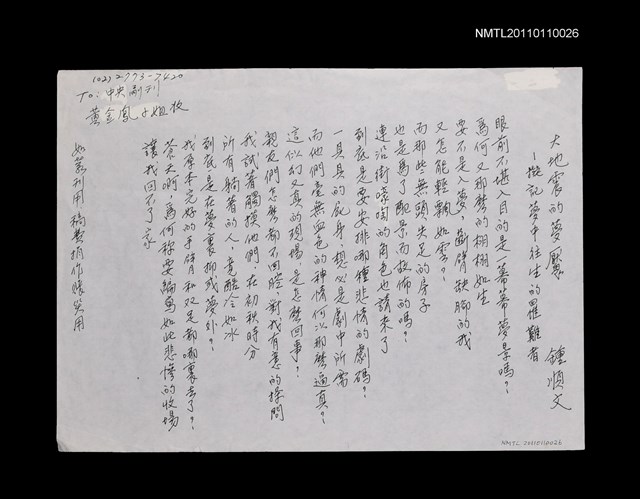 NMTL20110110026
大地震的夢魘
—擬記夢中往生的罹難者
鍾順文
眼前不堪入目的是一幕幕夢景嗎？
為何又那麼的栩栩如生
要不是入夢，斷臂缺腳的我
又怎能輕飄如雲？
而那些無頭失足的房子
也是為了配景而故佈的嗎？
連沿街嚎啕的角色也請來了
到底是要安排哪種悲情的劇碼？
一具具的屍身，想必是劇中所需
而他們毫無血色的神情何以那麼逼真？
這似幻又真的現場，是怎麼回事？
親友們怎麼都不回腔，對我有意的探問
我試著觸摸他們，在初秋時分
所有躺著的人，竟酷冷如冰
到底是在夢裏抑或夢外？
我原本完好的手臂和双足都哪裏去了？
蒼天啊，為何称要編寫如此悲慘的收場
讓我回不了家
如蒙刊用稿費捐作賑災用
(02)2773-7420
To：中央副刊
黃金鳳小姐收
NMTL 20110110026